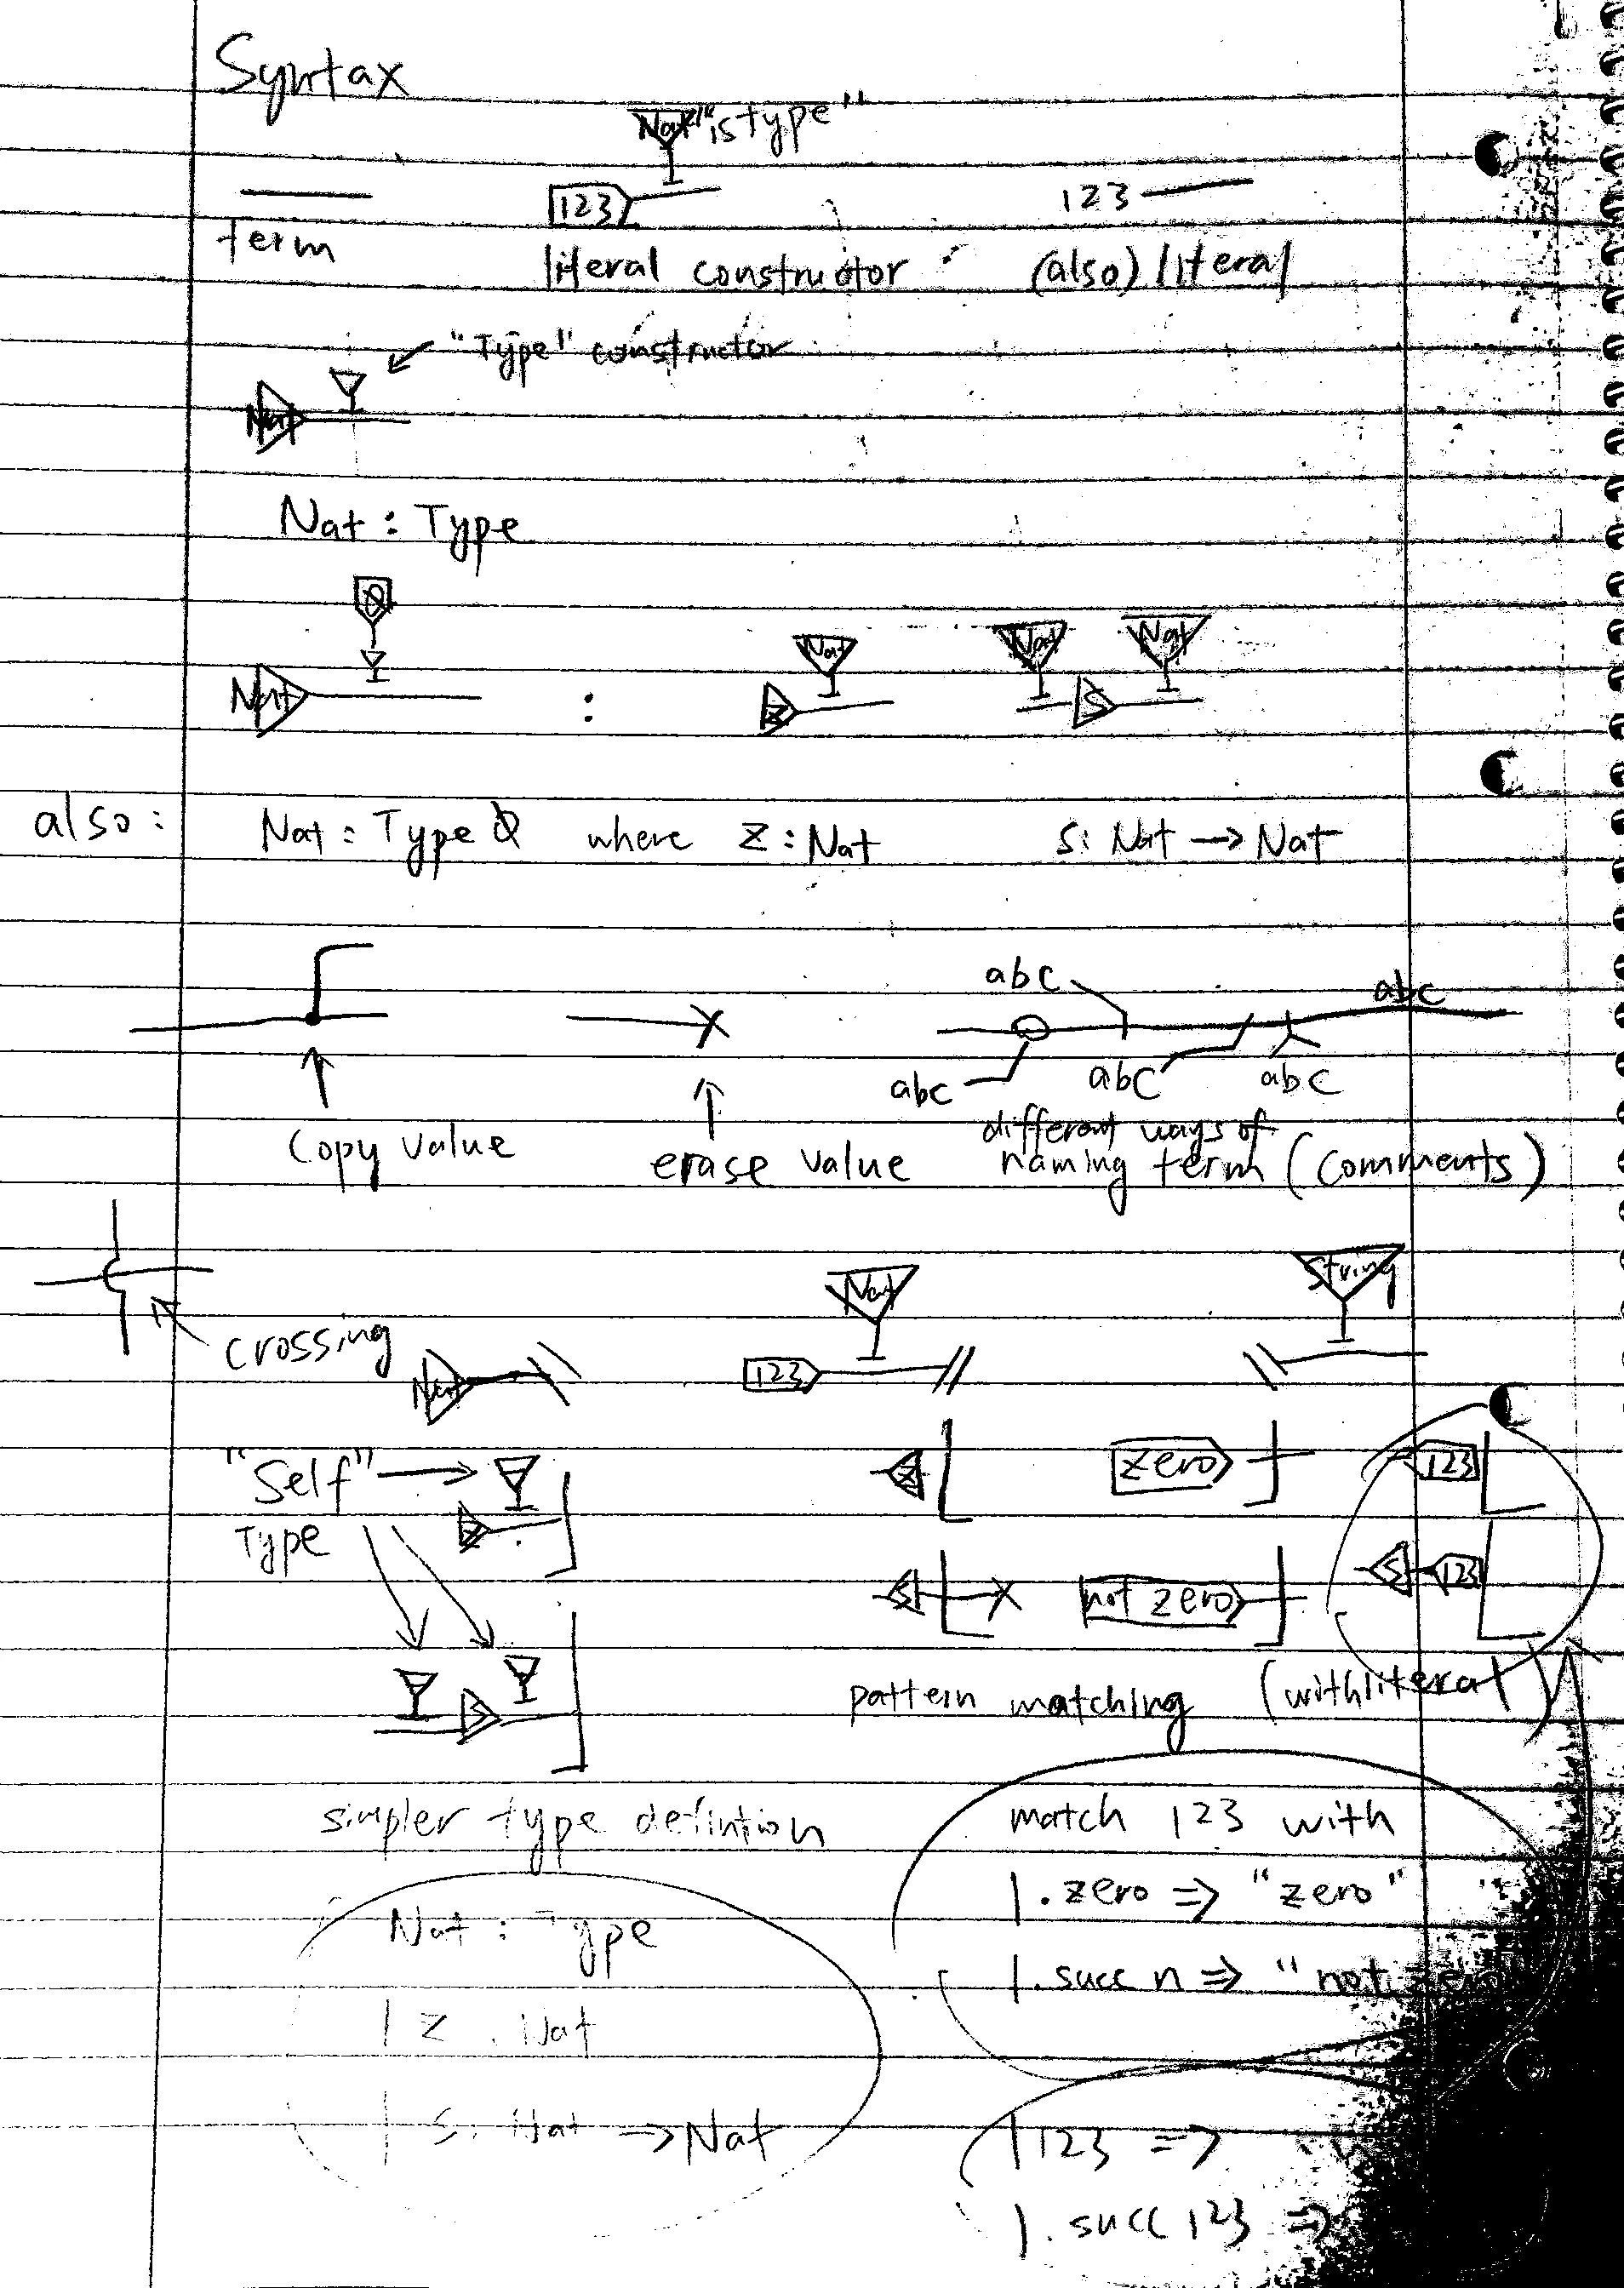 Syntax
Nat "is type"
123 123
term literal constructor (also) literal
"Type" constructor
Nat
Nat : Type
0
Nat Nat Nat
Nat : z S
also: Nat : Type 0 where z : Nat s: Nat → Nat
abc abc
abc abc abc
copy value erase value different ways of
naming term (comments)
Nat String
crossing Nat 123
"Self" z zero 123
Type z
S not zero S 123
S
pattern matching (with literal)
simpler type defintion match 123 with
|.zero ⇒ "zero"
Nat : Type
|.succ n ⇒ "not zero
| z : Nat
| s: Nat → Nat |123 ⇒
|.succ 123 ⇒